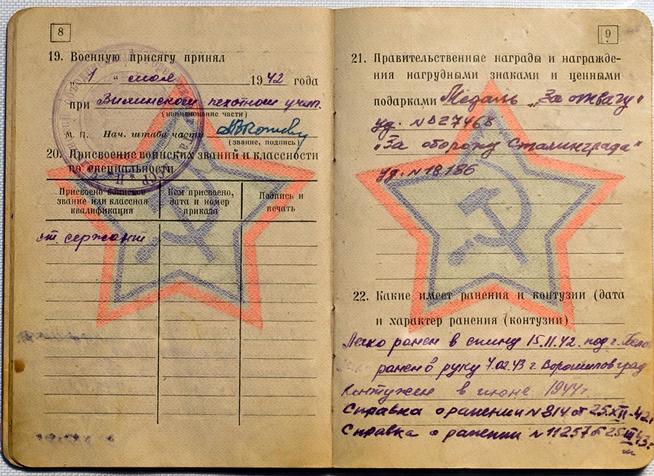 8
19. Военную присягу принял
„ 1 “ мая 1942 года
при Зиминском пехотном учил.
(наименование части)
М. П. Нач. штаба части
(звание, подпись)
20. Присвоение воинских званий и классности
по специальности
Присвоено воинское звание или классная квалификация
Кем присвоено, дата и номер приказа
Подпись и печать
ст. сержант
9
21. Правительственные награды и награжде-
ния нагрудными знаками и ценными
подарками Медаль „За отвагу“
уд. № 527468
„За оборону Сталинграда“
уд. № 18186
22. Какие имеет ранения и контузии (дата
и характер ранения (контузии)
Легко ранен в спину 15.11.42. под г.
ранен в руку 7.02.43 г. Ворошиловград
Контужен в июне 1944 г
Справка о ранении № 814 от 25.XII.42г
Справка о ранении № 11257 от 25.III.43г